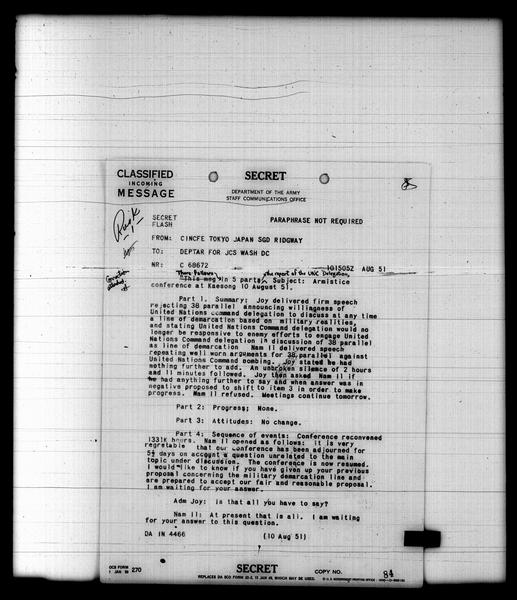 CLASSIFIED
INCOMING
MESSAGE
SECRET
DEPARTMENT OF THE ARMY
STAFF COMMUNICATIONS OFFICE
SECRET
FLASH
PARAPHRASE NOT REQUIRED
FROM: CINCFE TOKYO JAPAN SGD RIDGWAY
TO: DEPTAR FOR JCS WASH DC
NR: C 68672 101505Z AUG 51
There follows the report of the UNC Delegation,
This msg in 5 parts, Subject: Armistice
conference at Kaesong 10 August 51.
Part 1. Summary: Joy delivered firm speech
rejecting 38 parallel announcing willingness of
United Nations Command delegation to discuss at any time
a line of demarcation based on military realities,
and stating United Nations Command delegation would no
longer be responsive to enemy efforts to engage United
Nations Command delegation in discussion of 38 parallel
as line of demarcation Nam Il delivered speech
repeating well worn arguments for 38 parallel against
United Nations Command bombing. Joy stated he had
nothing further to add. An unbroken silence of 2 hours
and 11 minutes followed. Joy then asked Nam Il if
he had anything further to say and when answer was in
negative proposed to shift to item 3 in order to make
progress. Nam Il refused. Meetings continue tomorrow.
Part 2: Progress; None.
Part 3: Attitudes: No change.
Part 4: Sequence of events: Conference reconvened
1331K hours. Nam Il opened as follows: it is very
regretable that our conference has been adjourned for
5½ days on account a question unrelated to the main
topic under discussion. The conference is now resumed.
I would like to know if you have given up your previous
proposal concerning the military demarcation line and
are prepared to accept our fair and reasonable proposal.
I am waiting for your answer.
Adm Joy: Is that all you have to say?
Nam Il: At present that is all. I am waiting
for your answer to this question.
DA IN 4466 (10 Aug 51)
OCS FORM
1 JAN 50 270
SECRET
COPY NO. 84